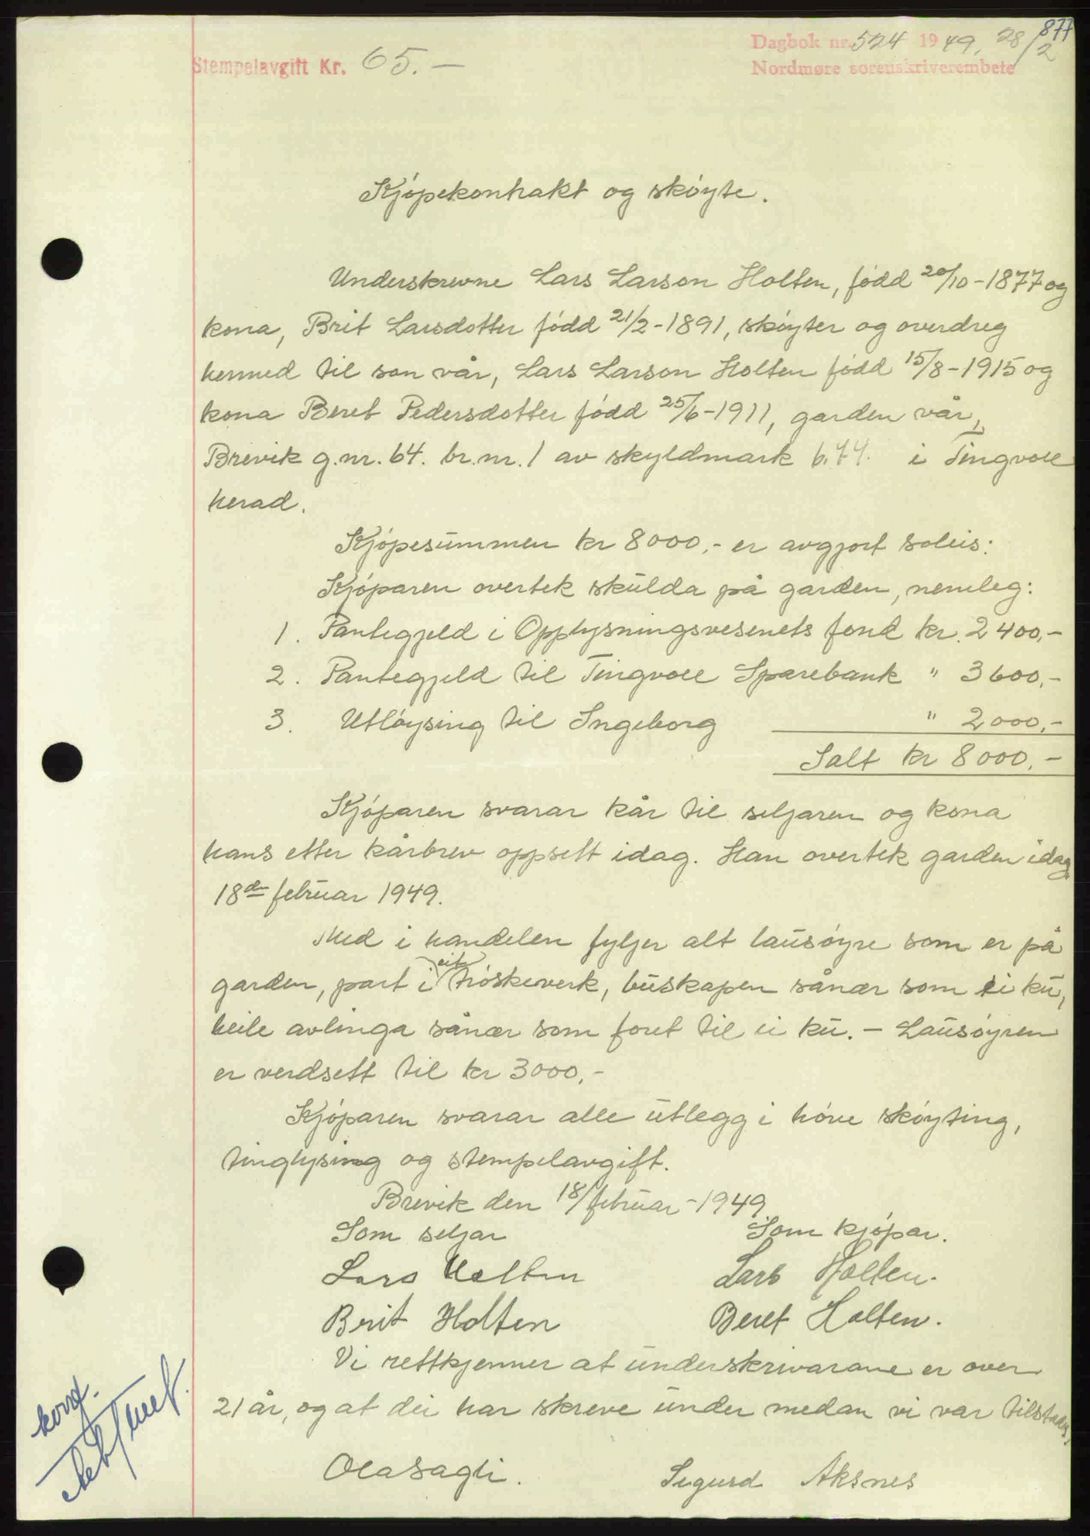 877
Dagbok nr. 524 1949, 28/2
Stempelavgift Kr. 65.-
Nordmøre sorenskriverembete
Kjøpekontrakt og skøyte.
Underskrevne Lars Larson Holten, fødd 20/10-1877 og
kona, Brit Larsdotter fødd 21/2-1891, skøyter og overdreg
hermed til son vår, Lars Larson Holten fødd 15/8-1915 og
kona Beret Pedersdotter fødd 25/6-1911, garden vår,
Brevik g.nr. 64. br.nr. 1 av skyldmark 6.74. i Tingvoll
herad.
Kjøpesummen kr 8000,- er avgjort soleis:
Kjøparen overtek skulda på garden, nemleg:
1. Pantegjeld i Opplysningsvesenets fond kr. 2400,-
2. Pantegjeld til Tingvoll Sparebank " 3600,-
3. Utløysing til Ingeborg " 2000,-
Ialt kr 8000,-
Kjøparen svarar kår til seljaren og kona
hans etter kårbrev oppsett idag. Han overtek garden idag
18de februar 1949.
Med i handelen fyljer alt lausøyre som er på
garden, part i eit trøskeverk, buskapen sånær som ei ku,
heile avlinga sånær som foret til ei ku. - Lausøyren
er verdsett til kr 3000,-
Kjøparen svarar alle utlegg i høve skøyting,
tinglysing og stempelavgift.
Brevik den 18/februar -1949
Som seljar Som kjøpar.
Lars Holten Lars Holten.
Brit Holten Beret Holten.
Vi rettkjenner at underskrivarane er over
21 år, og at dei har skreve under medan vi var tilstades,
Ola Sagli. Sigurd Aksnes
konf.